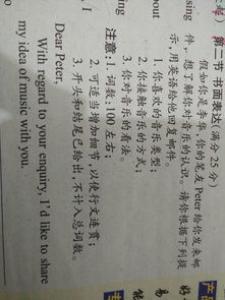 第二节 书面表达(满分 25 分)
假如你是李华,你的笔友 Peter 给你发来邮
件,想了解你对音乐的认识。请你根据下列提
示,用英语给他回复邮件。
1. 你喜欢的音乐类型;
2. 你接触音乐的方式;
3. 你对音乐的看法。
注意:1. 词数:100 左右;
2. 可适当增加细节,以使行文连贯;
3. 开头和结尾已给出,不计入总词数。
Dear Peter,
With regard to your enquiry, I'd like to share
my idea of music with you.
sing
bout
ing
, I